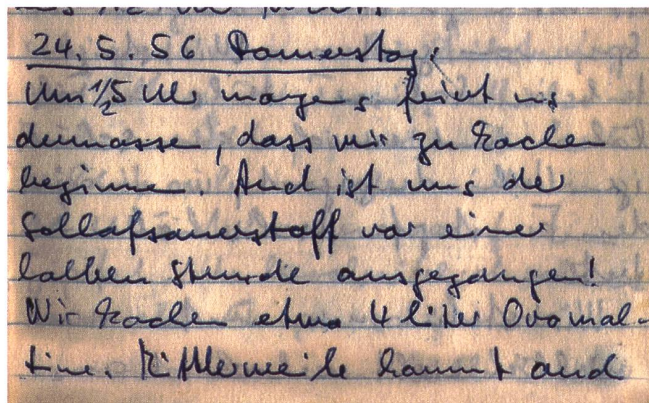 24. 5. 56 Donnerstag.
Um ½5 Uhr morgens friert uns
dermassen, dass wir zu kochen
beginnen. Auch ist uns der
Schlafsauerstoff vor einer
halben Stunde ausgegangen!
Wir kochen etwa 4 liter Ovomal-
tine. Mittlerweile kommt auch